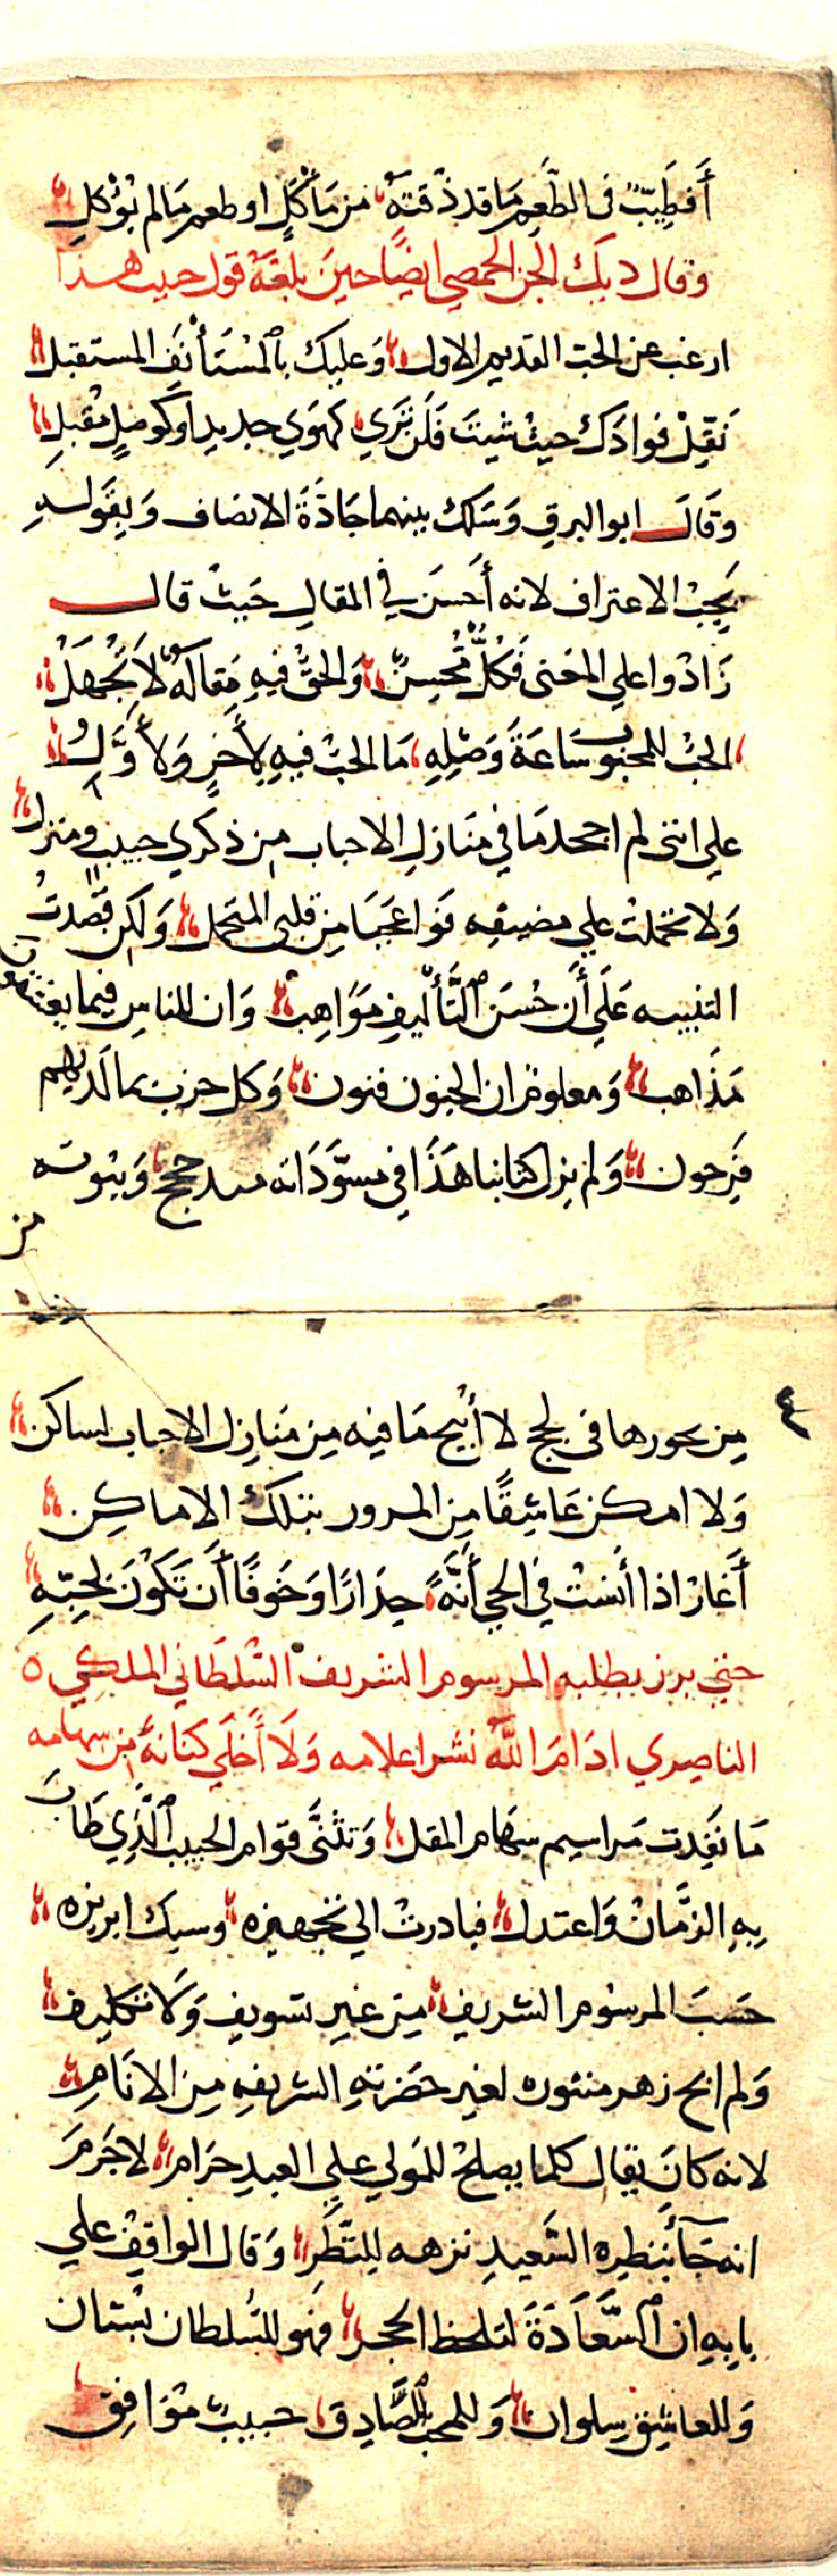 أَفطَيِّبٌ فى الطَّعِمِ مَا قد ذُقتَهُ من مَأكَلٍ او طعم مَا لم يُؤكلِ
وقال ديك الجن الحمصي ايضًا حينَ بلغَهُ قول حبيب هذا
ارغب عن الحبّ القديم الاول وَعليك بالمُسْتَأنَفِ المستقبل
نَقِّل فوادَك حيثُ شيتَ فَلَن تَرَي كَهَوَي جديد او كوصلٍ مُقبلِ
وقَالَ ابو البرق وَسَلك بينهما جَادَّةَ الانصاف وَبِقَولهِ
يَجِبُ الاعتراف لانه أَحسَنَ في المقالِ حَيثُ قال
زَادُوا علي المَعنى فَكُلٌّ مُحسِنٌ وَالحَقُّ فيهِ مَقالَةٌ لاَ تُجْهَلُ
الحبُّ للمحبُوب سَاعَةَ وَصْلِهِ مَا الحبُّ فيهِ لأخَرٍ وَلأَوَّلِ
علي انني لم اجحد مَا في مَنَازل الاحباب من ذكري حبيبٍ ومنزل
وَلا تحملت علي مضيقه فَوا عَجَبَا مِن قلبي المتحمل وَلكن قصَدتُ
التنبيه عَلَي أَن حُسَن التَّأليفِ مَوَاهِب وَان للناسِ فيما يعشقون
مَذَاهب وَمعلوم ان الجنون فنون وَكل حزب بما لَديهم
فَرِحون وَلم يزل كتابنا هَذَا في مسوّدَاته مسدحج وَبيُوته
من
٤
مِن بحورها في لجج لا أُبيح مَا فيه مِن مَنازِل الاحباب لساكن
وَلا امكن عَاشِقًا مِن المرور بتلك الاماكِن
أَغَارُ اذا أَنسْتُ في الحي أَنَّةً حِذارًا وَخوفًا أَن تَكُونَ لحِبِّهِ
حتي برز بطلبه المرسوم الشريف السُّلطَاني الملكي ه
الناصري ادَامَ اللهُ نشر اعلامه وَلَا أَخلَي كنَانةً من سهامه
مَا نَفِدت مَراسيم سهَام المقل وَتثنَّى قوام الحبيب الَّذِي طَابَ
بهِ الزَّمانُ وَاعتدل فبادرتُ الي تجهيزه وسبك ابريزه
حَسَبَ المرسُوم الشريف مِن غير تسويفٍ وَلا تكليف
وَلم ابح زهر منثوره لغير حَضرتهِ الشريفهِ مِن الانَامِ
لانه كانَ يقال كلما يصلحُ للمَولي علي العبدِ حَرَام لا جَرَمَ
انه جَآ بنظيره السَّعيدِ نزهه لِلنَّظَرِ وَقال الواقِفُ علي
بابِهِ ان السَّعَادَةَ لتلحظ الحجر فهو للسُّلطان بُستان
وَللعاشِق سِلوان وَللمحبّ الصَّادِق حبيبٌ مُوَافِق